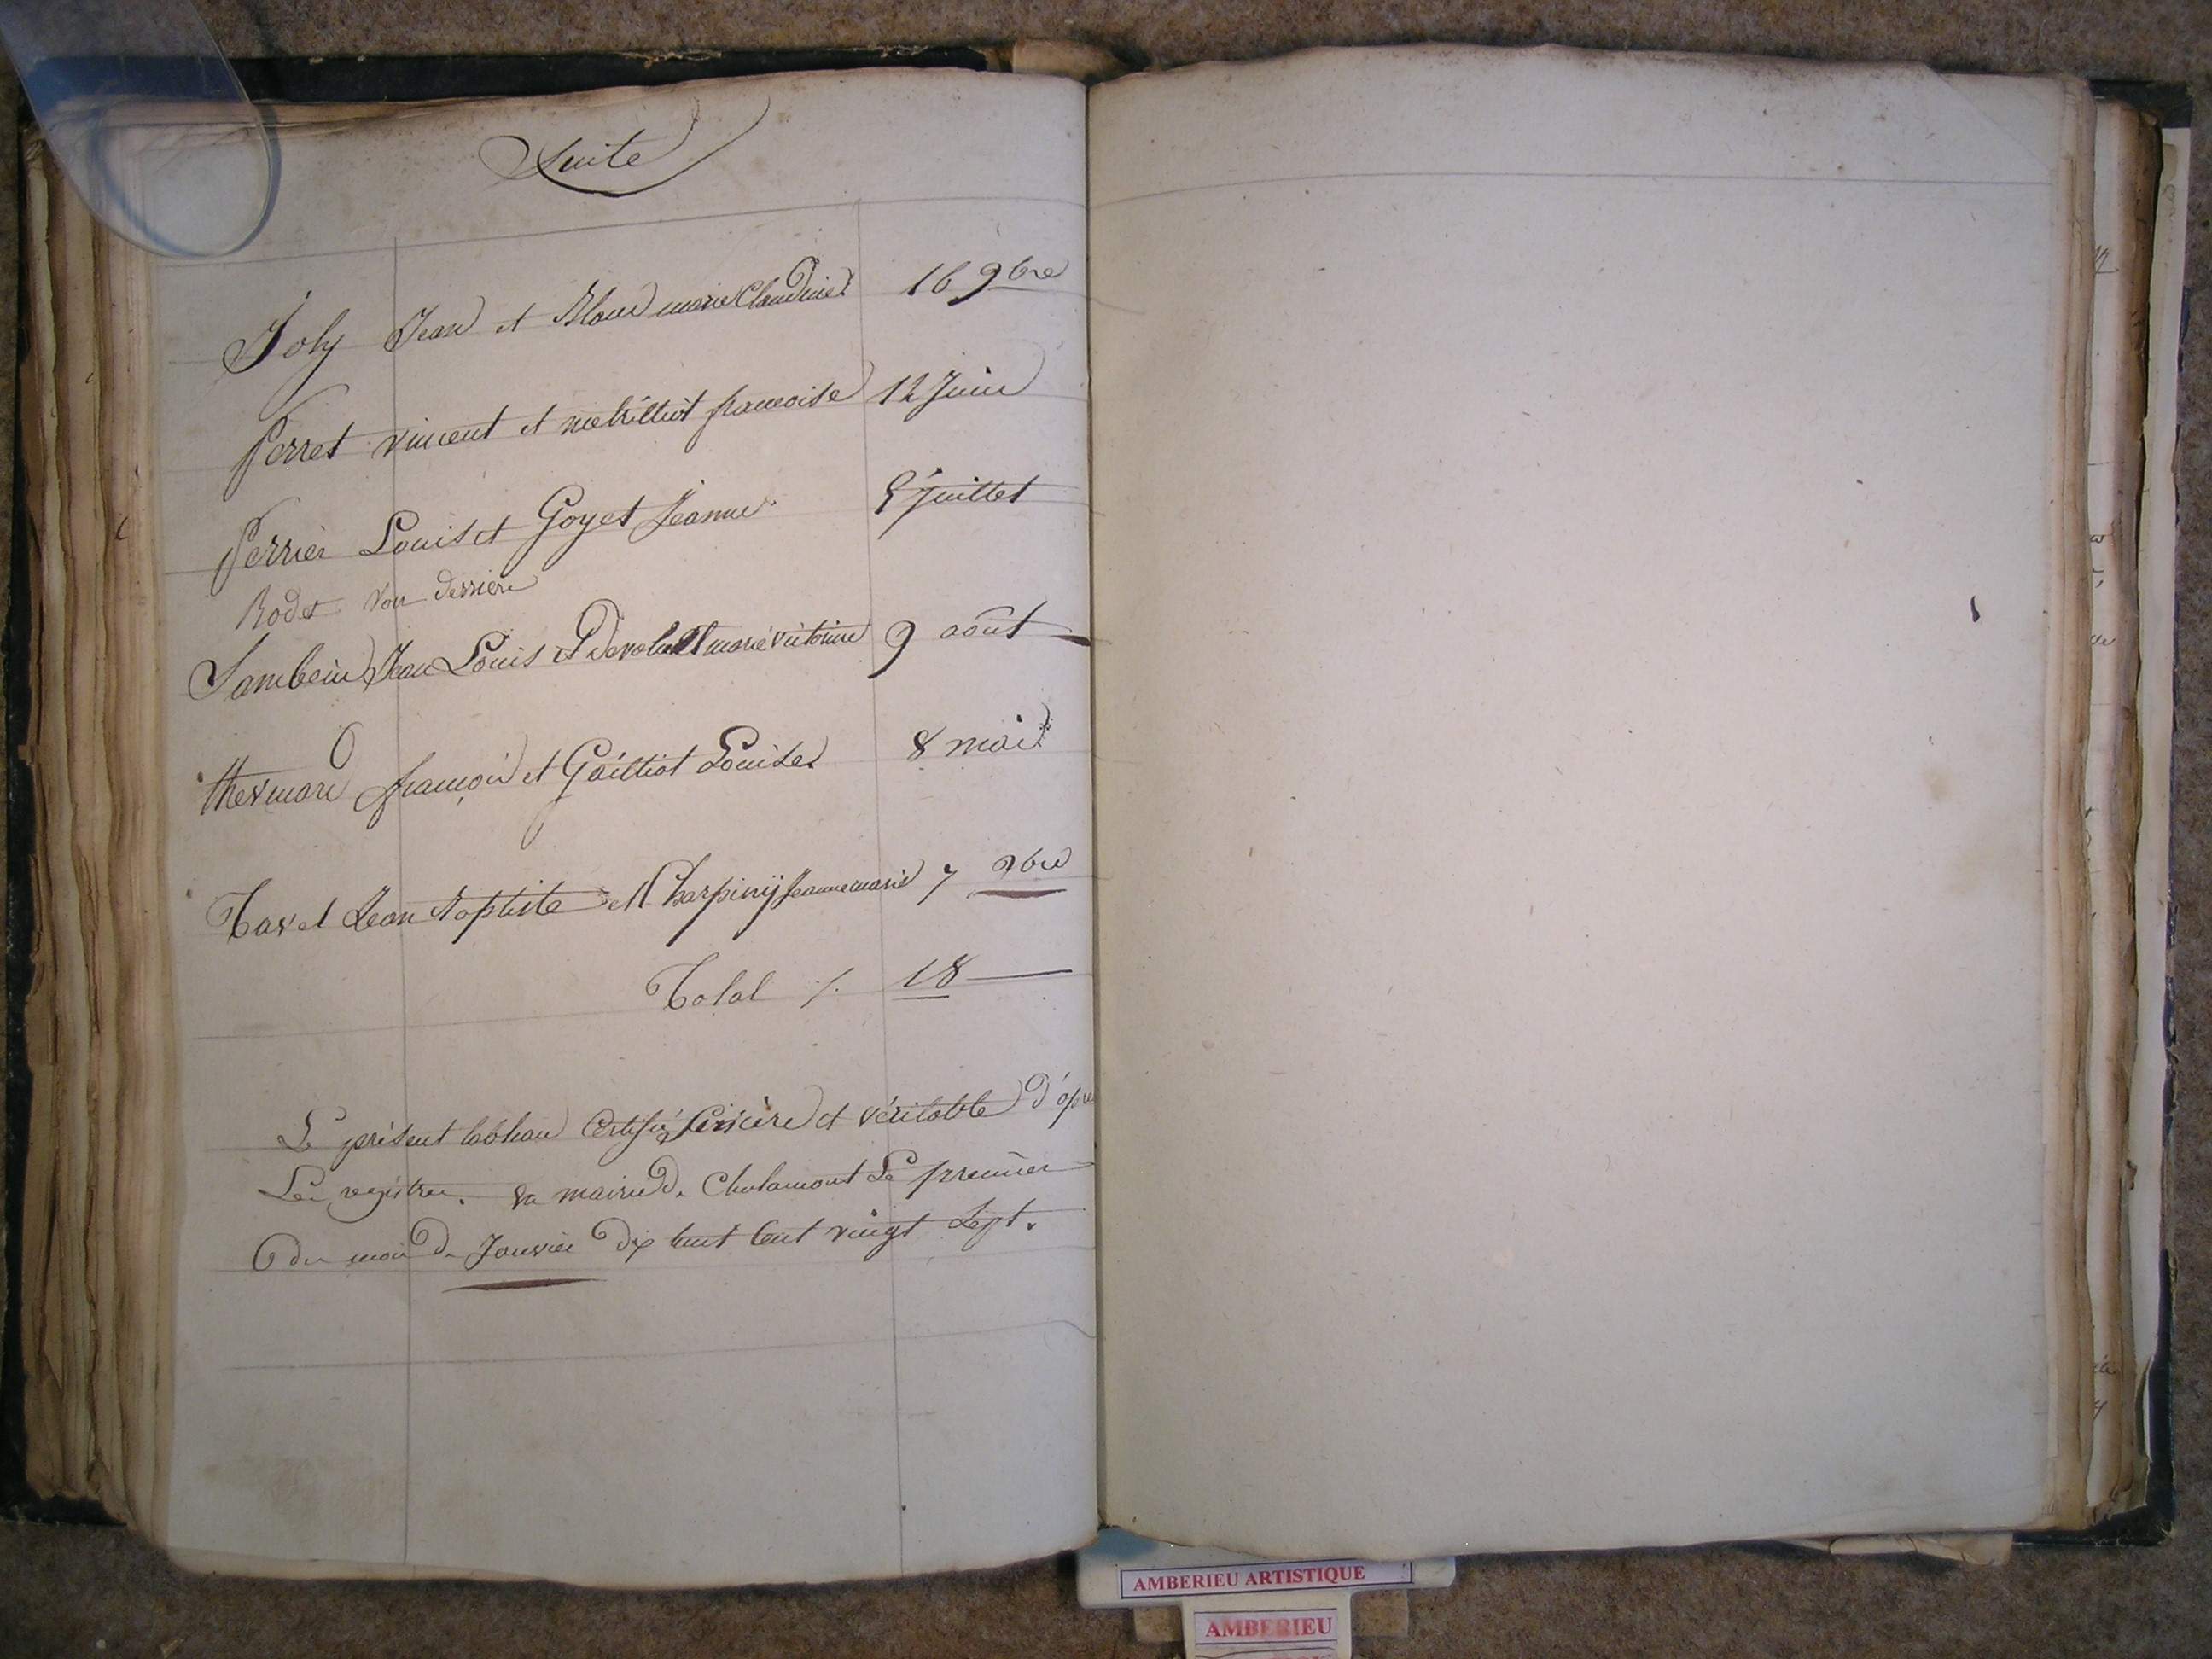 Suite
Joly Jean et Blanc marie Claudine 16 9bre
Perret vincent et françoise 12 Juin
Perrier Louis et Goyet Jeanne 5 Juillet
Rodet Voir derrière
Sambein Jean Louis et marie victorine 9 août
françois et Gailliot Louise 8 mai
Tavel Jean Baptiste et Charpiny Jeanne marie 7 9bre
Total /. 18
Le présent tableau Certifié Sincère et véritable d'après
Les registres. En mairie de Chalamont Le premier
du mois de Janvier dix huit Cent vingt Sept.
AMBERIEU ARTISTIQUE
AMBERIEU